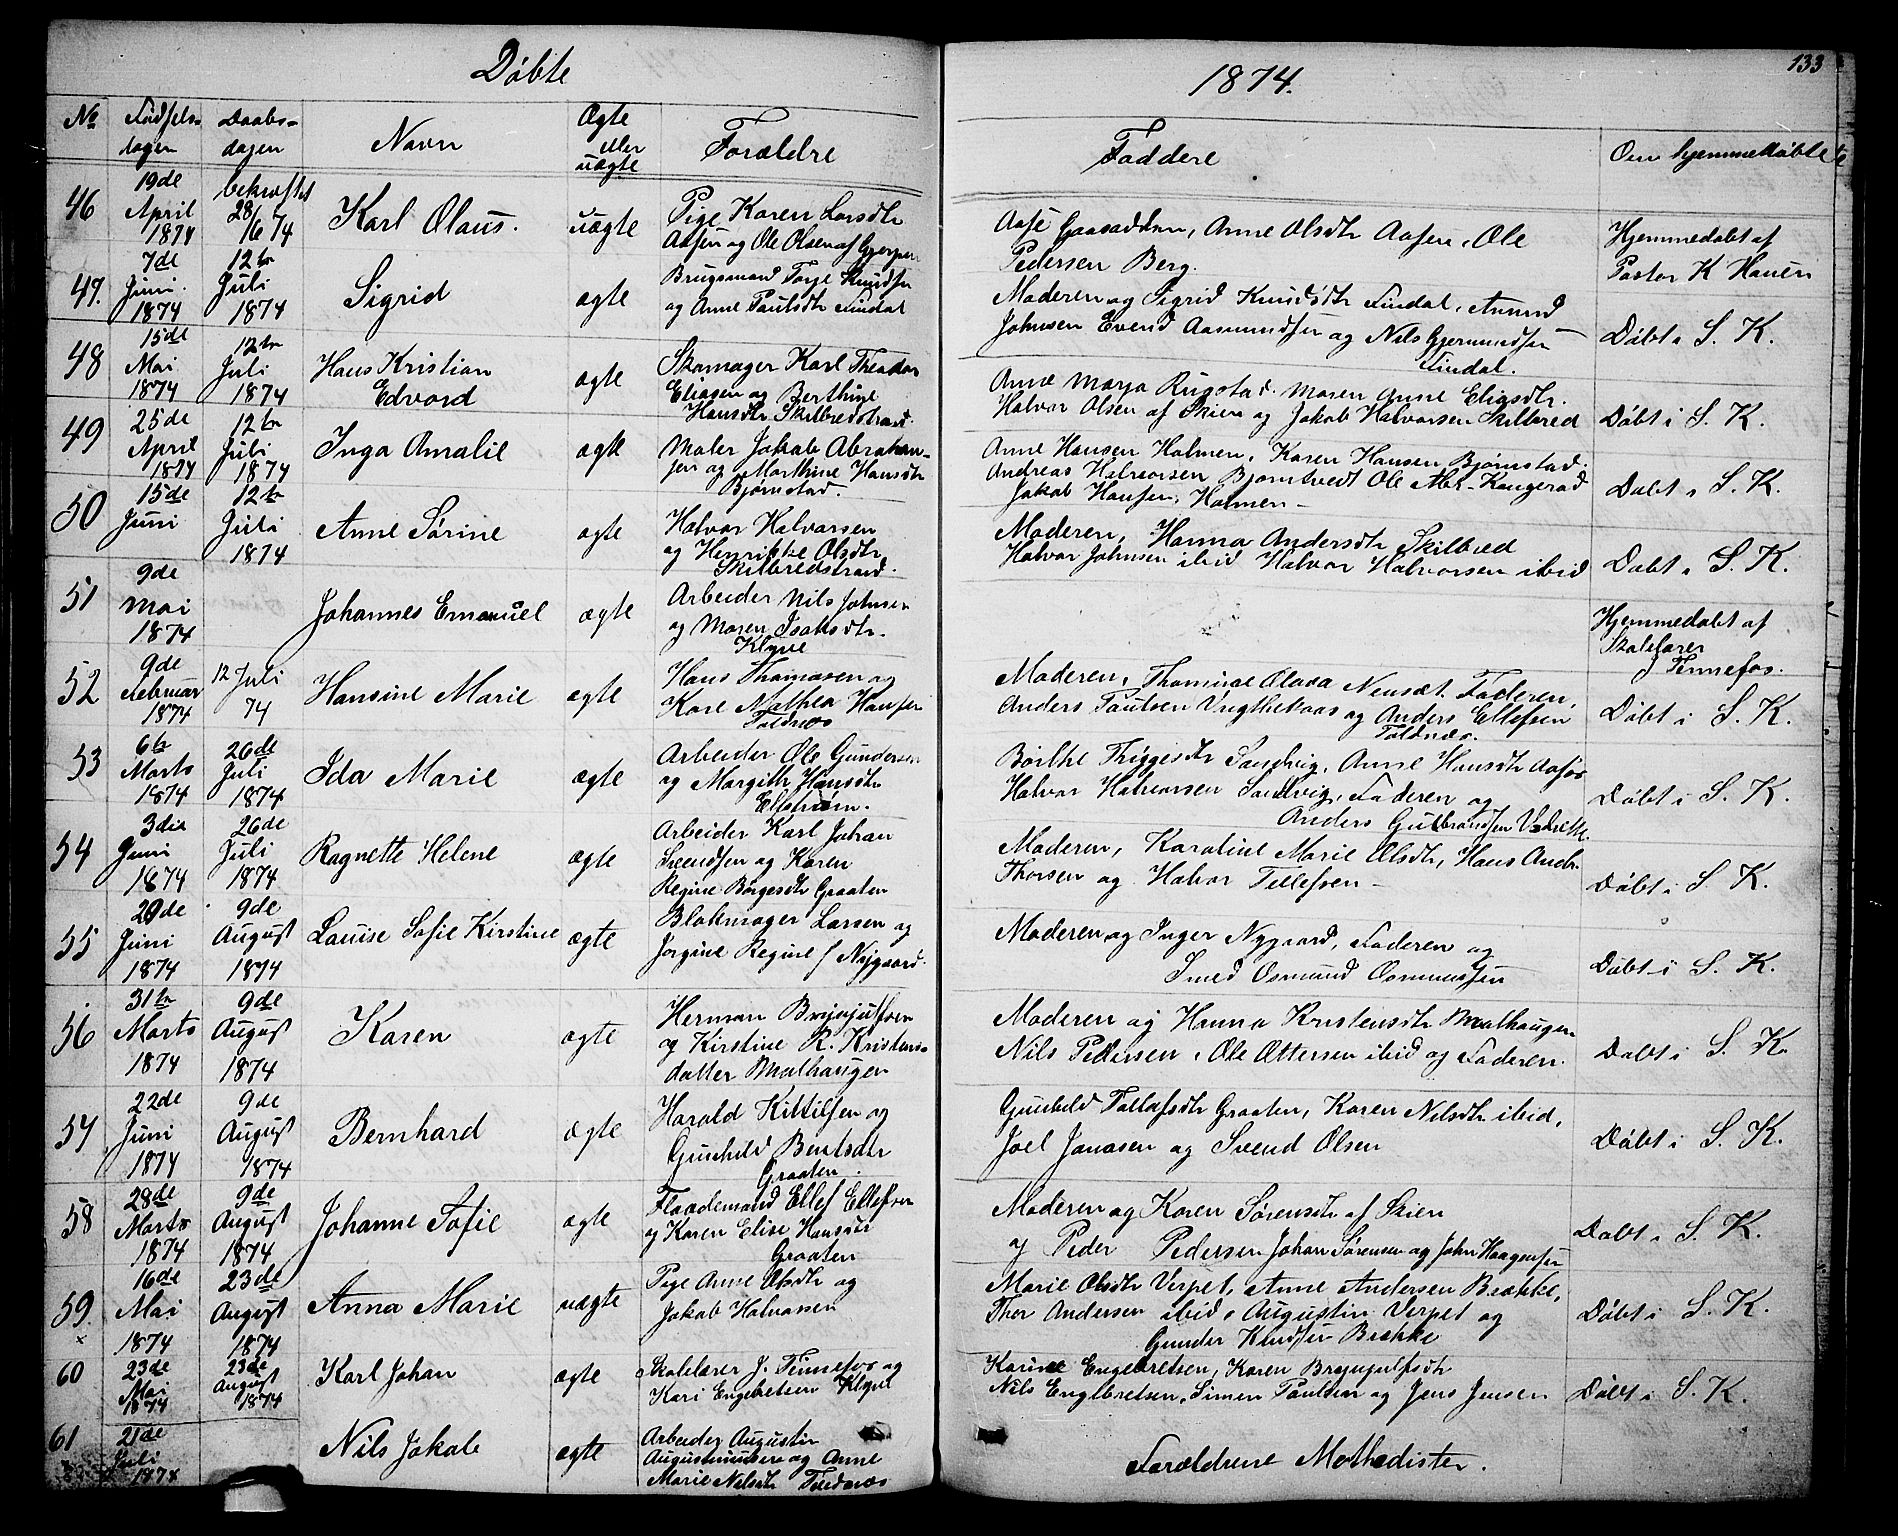 Döbte 1874. 133
No Födsels- dagen Daabs- dagen Navn Ægte eller uægte Forældre Faddere Om hjemmedöbte
46 19de April 1874 bekræftet 28/6 74 Karl Olaus. uægte
Pige Karen Larsdtr
Aasen og Ole Olsen af Gjerpen
Aase Gaasadden, Anne Olsdtr Aasen, Ole
Pedersen Berg.
Hjemmedöbt af
Pastor K Hauen
47. 7de Juni 1874 12te Juli 1874 Sigrid ægte
Brugsmand Torje Knudsen
og Anne Paulsdtr Findal
Moderen og Sigrid Knudsdtr Findal, Amund
Johnsen Evend Aasmundsen og Nils Gjermundsen
Findal.
Döbt i S. K.
48 15de Mai 1874 12te Juli 1874 Hans Kristian
Edvard ægte
Skomager Karl Theodor
Eliasen og Berthine
Hansdtr Skilbredstrand.
Anne Marja Rugstad. Maren Anne Eliasdtr.
Halvor Olsen af Skien og Jakob Halvorsen Skilbred
Döbt i S. K.
49 25de April 1874 12te Juli 1874 Inga Amalie ægte
Maler Jakob Abraham-
sen og Marthine Hansdtr
Bjørnstad.
Anne Hansen Holmen, Karen Hansen Bjørnstad.
Andreas Halvorsen Bjørntvedt Ole Abr. Kongerød
Jakob Hansen, Holmen -
Döbt i S. K.
50 15de Juni 12te Juli 1874 Anne Sørine ægte
Halvor Halvorsen
og Henrikke Olsdtr
Skilbredstrand.
Moderen, Hanna Andersdtr Skilbred
Halvor Johnsen ibid Halvor Halvorsen ibid
Döbt i S. K.
51 9de Mai 1874 Johannes Emanuel ægte
Arbeider Nils Johnsen
og Maren Isaksdtr.
Klyve
Hjemmedöbt af
Skolelærer
J Tinnefos.
52 9de Februar 1874 12 Juli 74 Hansine Marie ægte
Hans Thomasen og
Kare Mathea Hansen
Foldnæs
Moderen, Thomine Olava Nensæt, Faderen,
Anders Paulsen og Anders Ellefsen
Foldnæs.
Döbt i S. K.
53 6te Marts 1874 26de Juli 1874 Ida Marie ægte
Arbeider Ole Gundersen
og Margith Hansdtr
Ellström.
Børthe Thriggesdtr Sandvig, Anne Hansdtr Aafos
Halvor Halvorsen Sandvig, Faderen og
Anders Gulbrandsen
Döbt i S. K.
54 3die Juni 1874 26de Juli 1874 Ragnette Helene ægte
Arbeider Karl Johan
Svendsen og Karen
Regine Börgesdtr Graaten
Moderen, Karoline Marie Olsdtr, Hans Andr.
Thorsen og Halvor Tellefsen -
Döbt i S. K.
55 29de Juni 1874 9de August 1874 Lauise Sofie Kirstine ægte
Blokmager Larsen og
Jorgine Regine f Nygaard.
Moderen og Inger Nygaard, Faderen og
Smed Osmund Osmundsen
Döbt i S. K.
56 31te Marts 1874 9de August 1874 Karen ægte
Herman Brynjulfsen
og Kirstine R. Kristens-
datter Molhaugen
Moderen og Hanna Kristensdtr Molhaugen
Nils Pedersen, Ole Ottersen ibid og Faderen.
Döbt i S. K.
57 22de Juni 1874 9de August 1874 Bernhard ægte
Harald Kittilsen og
Gunhild Bentsdtr
Graaten.
Gunhild Tollefsdtr Graaten, Karen Nilsdtr ibid,
Joel Jonasen og Svend Olsen
Döbt i S. K.
58 28de Marts 1874 9de August 1874 Johanne Sofie ægte
Flaademand Ellef Ellefsen
og Karen Elise Hansdtr
Graaten
Moderen og Karen Sørensdtr af Skien
og Peder Pedersen Johan Sørensen og John Haagensen
Döbt i S. K.
59. x 16de Mai 1874 23de August 1874 Anna Marie uægte
Pige Anne Olsdtr og
Jakob Halvorsen
Marie Olsdtr Verpet, Anne Andersen Brække,
Thor Andersen ibid, Augustin Verpet og
Gunder Knudsen Brække
Döbt i S. K.
60 23de Mai 1874 23de August 1874 Karl Johan ægte
Skolelærer J. Tinnefos og
Kari Engebretsen Klyve
Karine Engebretsen, Karen Brynjulfsdtr
Nils Engebretsen, Simen Paulsen og Jens Jensen
Döbt i S. K.
61 21de Juli 1874 Nils Jakob ægte
Arbeider Augustin
Augustinussen og Anne
Marie Nilsdtr
Forældrene Methodister.